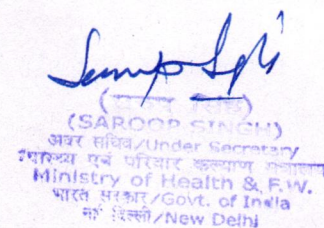 (SAROOP SINGH)
अवर सचिव/Under Secretary
स्वास्थ्य एवं परिवार कल्याण मंत्रालय
Ministry of Health & F.W.
भारत सरकार/Govt. of India
नई दिल्ली/New Delhi